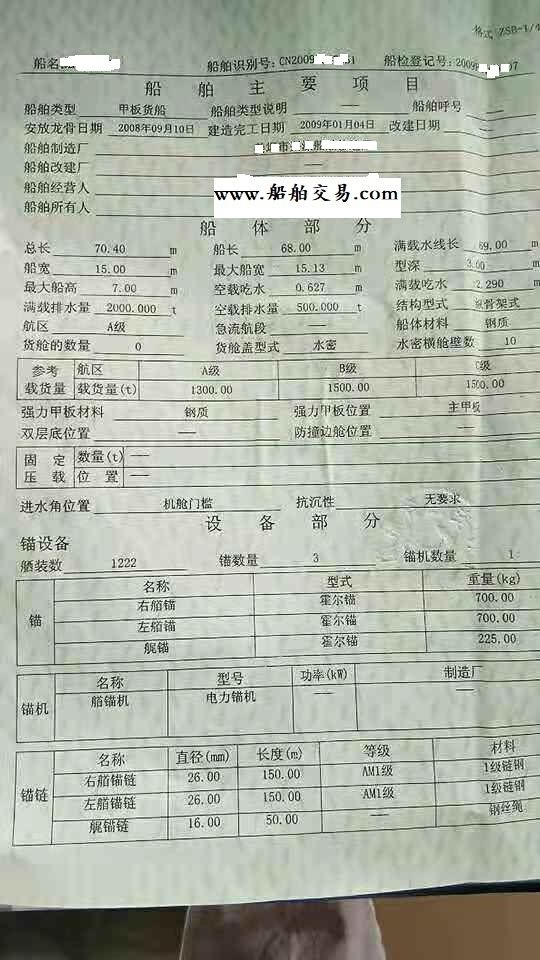 格式 ZSB-1/4
船名 船舶识别号: CN2009 1 船检登记号: 2009 07
船 舶 主 要 项 目
船舶类型 甲板货船 船舶类型说明 —— 船舶呼号 ——
安放龙骨日期 2008年09月10日 建造完工日期 2009年01月04日 改建日期 ——
船舶制造厂
船舶改建厂
船舶经营人
www.船舶交易.com
船舶所有人
船 体 部 分
总长 70.40 m 船长 68.00 m 满载水线长 69.00 m
船宽 15.00 m 最大船宽 15.13 m 型深 3.00 m
最大船高 7.00 m 空载吃水 0.627 m 满载吃水 2.290 m
满载排水量 2000.000 t 空载排水量 500.000 t 结构型式 骨架式
航区 A级 急流航段 —— 船体材料 钢质
货舱的数量 0 货舱盖型式 水密 水密横舱壁数 10
参考 航区 A级 B级 C级
载货量 载货量(t) 1300.00 1500.00 1500.00
强力甲板材料 钢质 强力甲板位置 主甲板
双层底位置 —— 防撞边舱位置 ——
固 定 数量(t) ——
压 载 位 置 ——
进水角位置 机舱门槛 抗沉性 无要求
设 备 部 分
锚设备
舾装数 1222 锚数量 3 锚机数量 1
名称 型式 重量(kg)
锚 右艏锚 霍尔锚 700.00
左艏锚 霍尔锚 700.00
艉锚 霍尔锚 225.00
名称 型号 功率(kW) 制造厂
锚机 艏锚机 电力锚机 —— ——
名称 直径(mm) 长度(m) 等级 材料
锚链 右艏锚链 26.00 150.00 AM1级 1级链钢
左艏锚链 26.00 150.00 AM1级 1级链钢
艉锚链 16.00 50.00 —— 钢丝绳